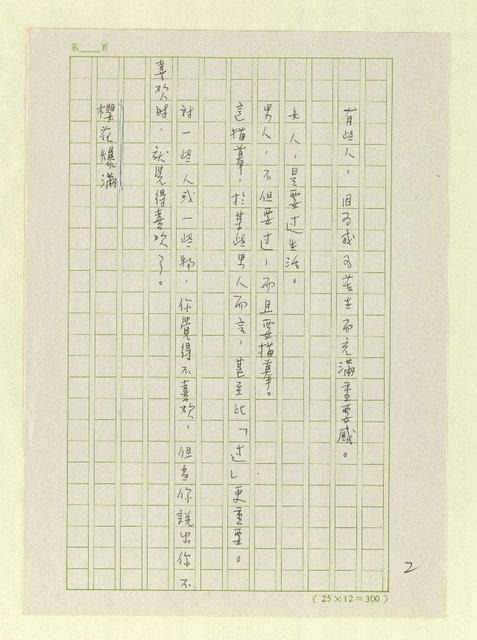 第　頁
有些人，因为成为苦主而充滿重要感。
女人，是要过生活。
男人，不但要过，而且要描摹。
這描摹，於某些男人而言，甚至比「过」更重要。
討一些人或一些物，你覺得不喜欢，但当你說出你不
喜欢时，就覺得喜欢了。
櫻花爆滿
2
(25×12=300)